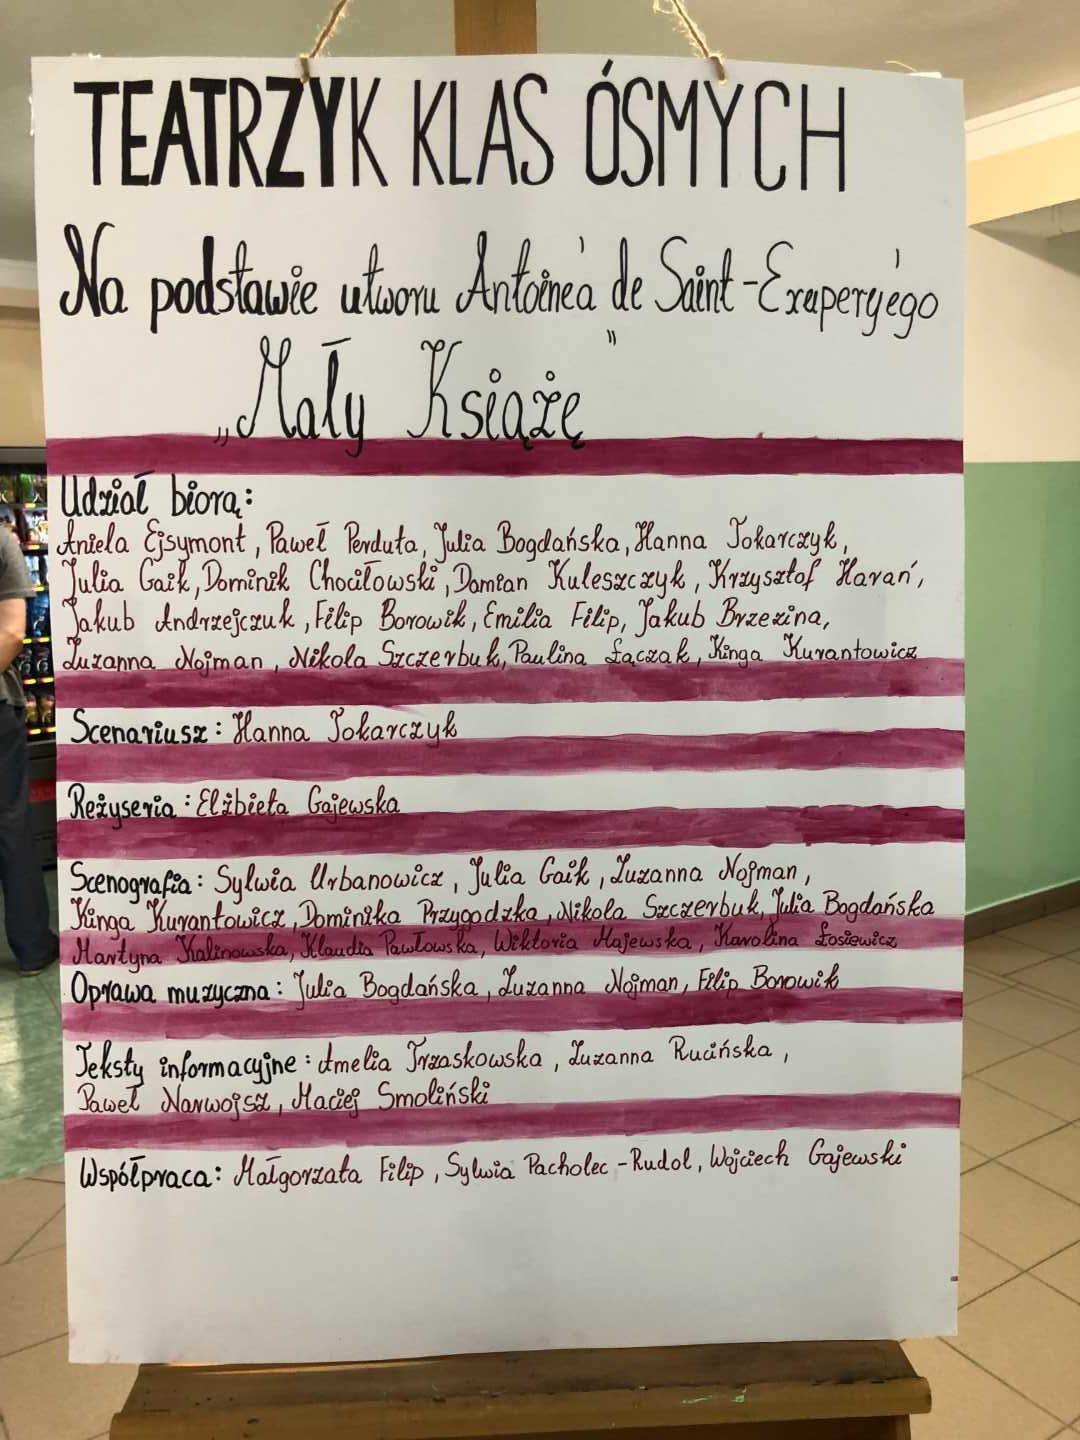 TEATRZYK KLAS ÓSMYCH
Na podstawie utworu Antoine'a de Saint-Exupery'ego
„Mały Książę"
Udział biorą:
Aniela Ejsymont, Paweł Perduta, Julia Bogdańska, Hanna Tokarczyk,
Julia Gaik, Dominik Chociłowski, Damian Kuleszczyk, Krzysztof Harań,
Jakub Andrzejczuk, Filip Borowik, Emilia Filip, Jakub Brzezina,
Zuzanna Nojman, Nikola Szczerbuk, Paulina Łączak, Kinga Kurantowicz
Scenariusz: Hanna Tokarczyk
Reżyseria: Elżbieta Gajewska
Scenografia: Sylwia Urbanowicz, Julia Gaik, Zuzanna Nojman,
Kinga Kurantowicz, Dominika Przygodzka, Nikola Szczerbuk, Julia Bogdańska
Martyna Kalinowska, Klaudia Pawłowska, Wiktoria Majewska, Karolina Łosiewicz
Oprawa muzyczna: Julia Bogdańska, Zuzanna Nojman, Filip Borowik
Teksty informacyjne: Amelia Trzaskowska, Zuzanna Rucińska,
Paweł Narwojsz, Maciej Smoliński
Współpraca: Małgorzata Filip, Sylwia Pacholec-Rudol, Wojciech Gajewski